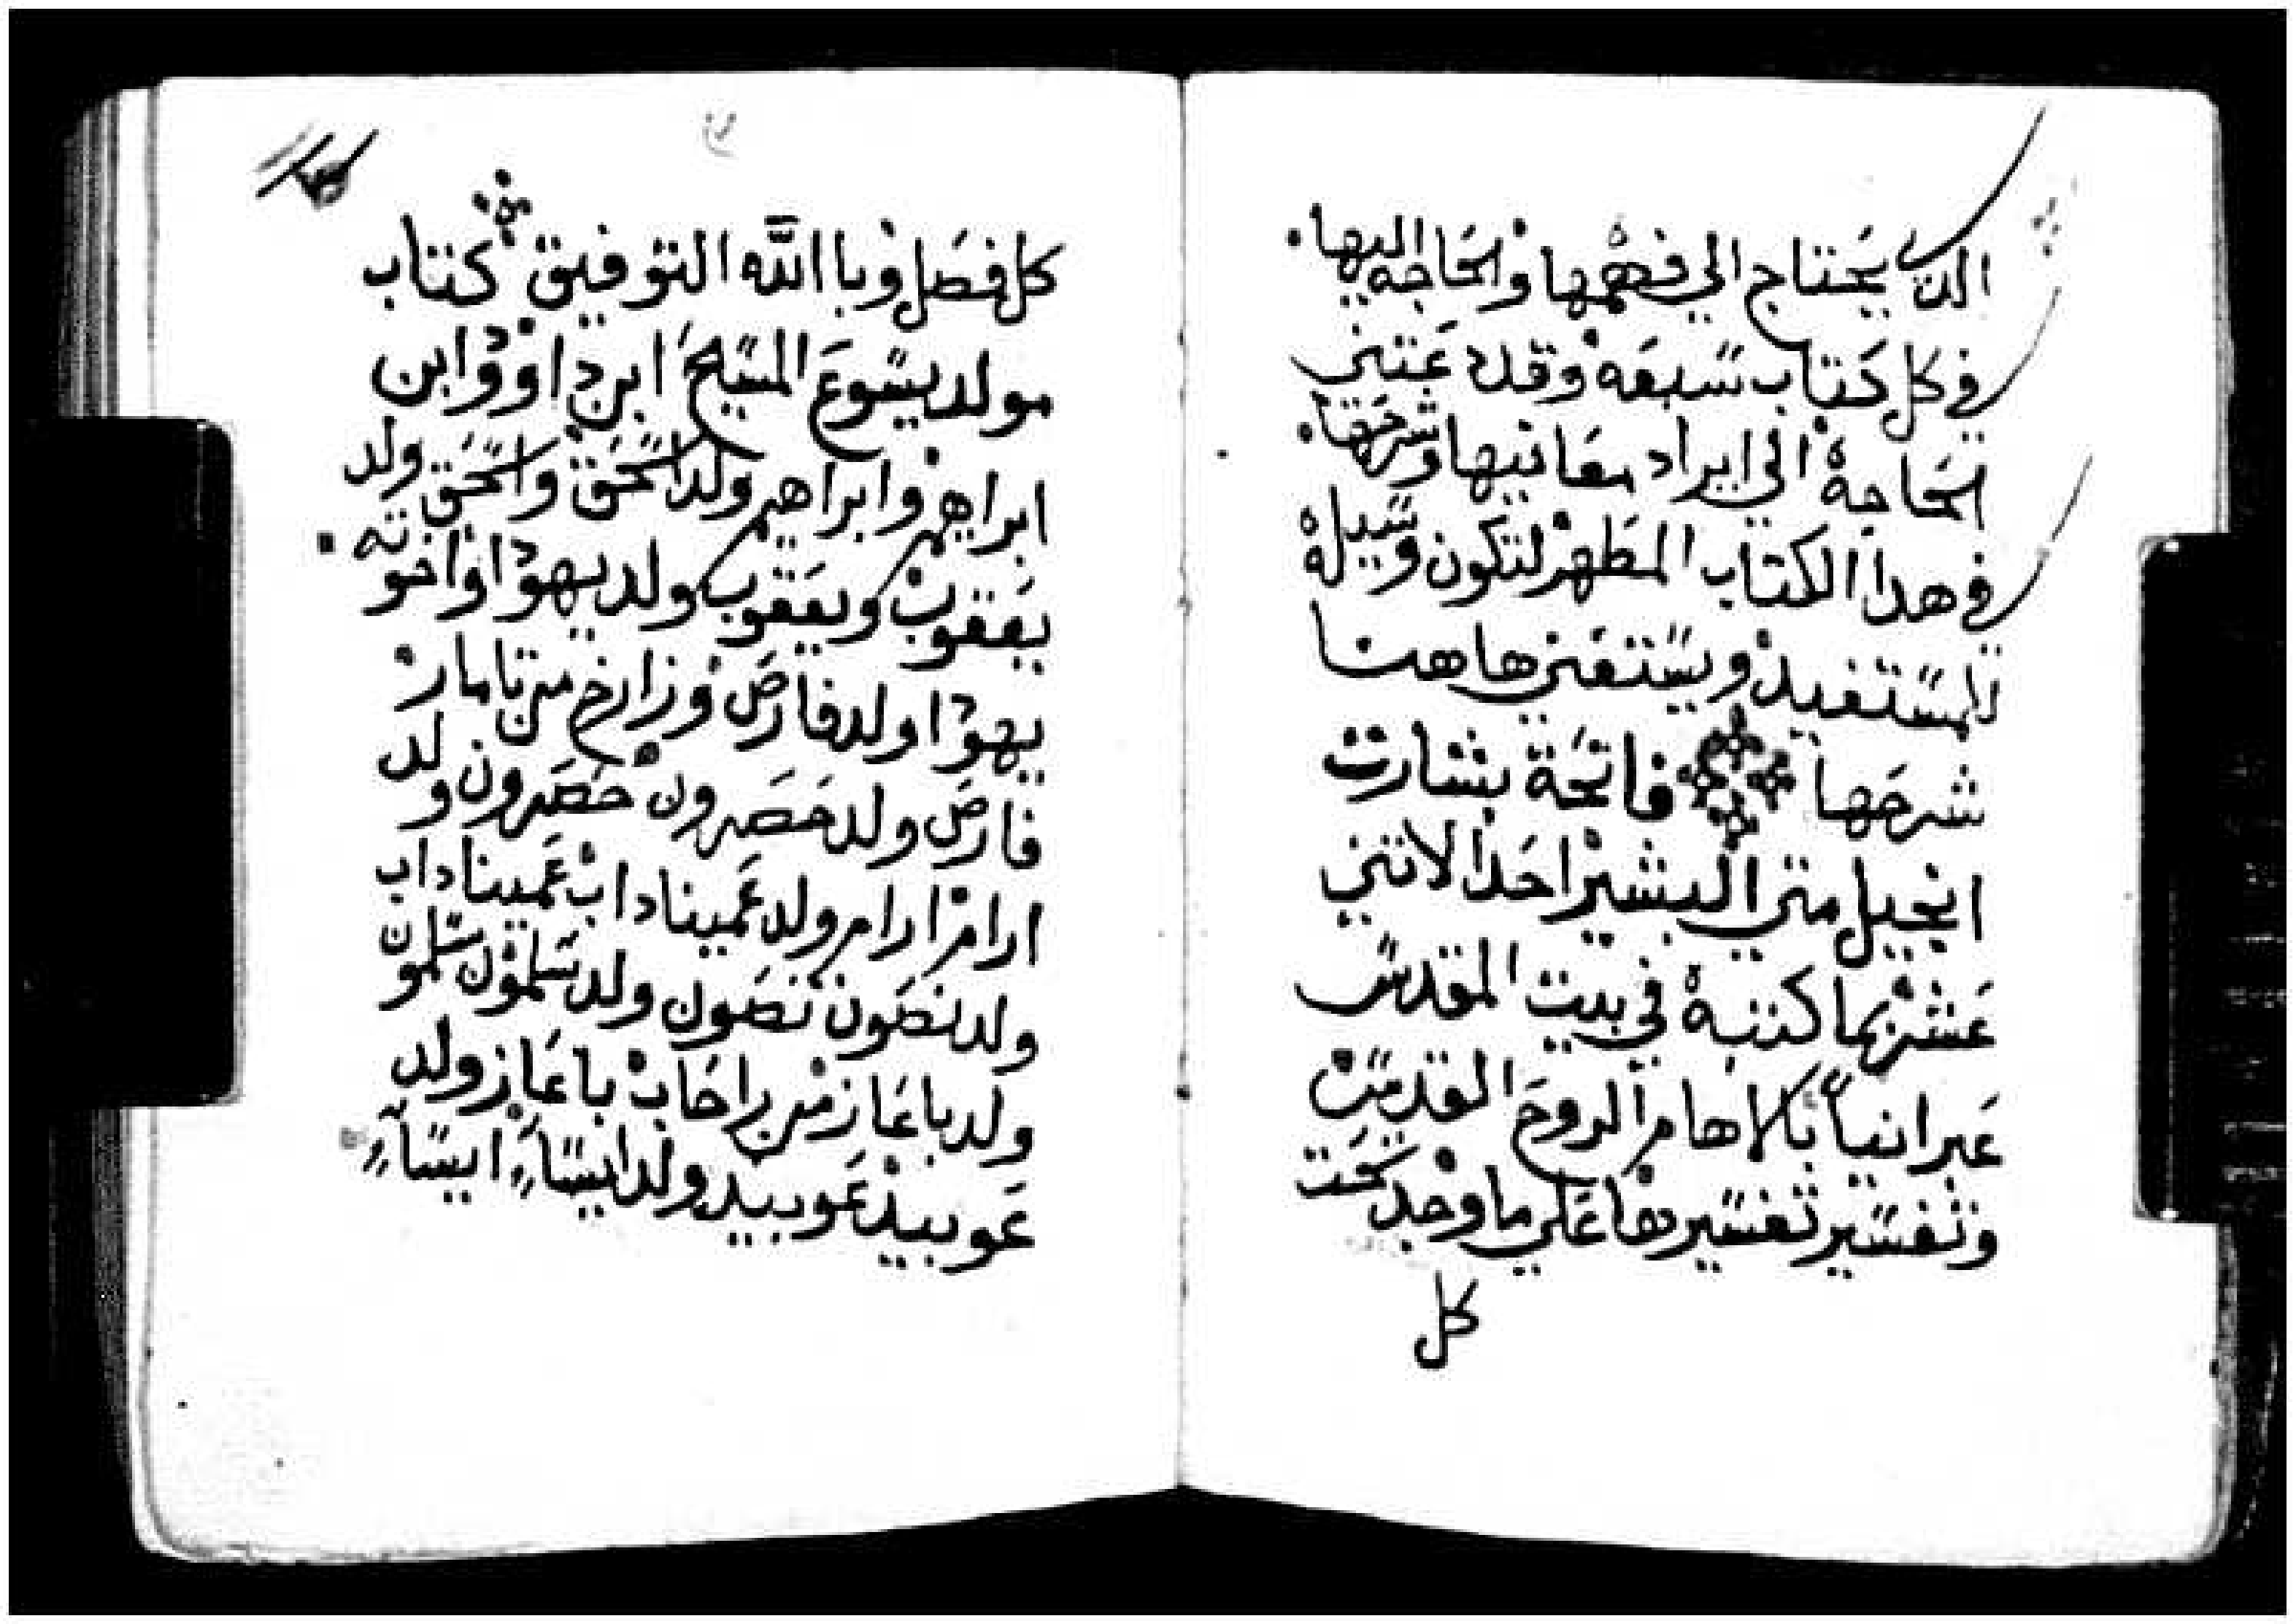 الدي يحتاج الي فهمها والحاجه اليها
في كل كتاب سبعه وقد عتني
الحاجة الي ايراد معانيها وشرحها
في هدا الكتاب المطهر لتكون وسيلة
للمستفيد ويستغني هاهنا
شرحها فاتحة بشارت
انجيل متي البشير احد الاتني
عشر مما كتبه في بيت المقدس
عبرانياً بالاهام الروح القدس
وتفسير تفسيرها علي ما وجد تحت
كل
كل فصل وبا الله التوفيق كتاب
مولد يسوع المسيح ابن داوود ابن
ابراهيم وابراهيم ولد اسحق واسحق ولد
يعقوب ويعقوب ولد يهودا واخوته
يهودا ولد فارص وزارخ من تامار
فارص ولد حصرون حصرون ولد
ارام ارام ولد عميناداب عميناداب
ولد نصون نصون ولد سلمون سلمون
ولد باعاز من راحاب باعاز ولد
عوبيد عوبيد ولد ايساء ايساء